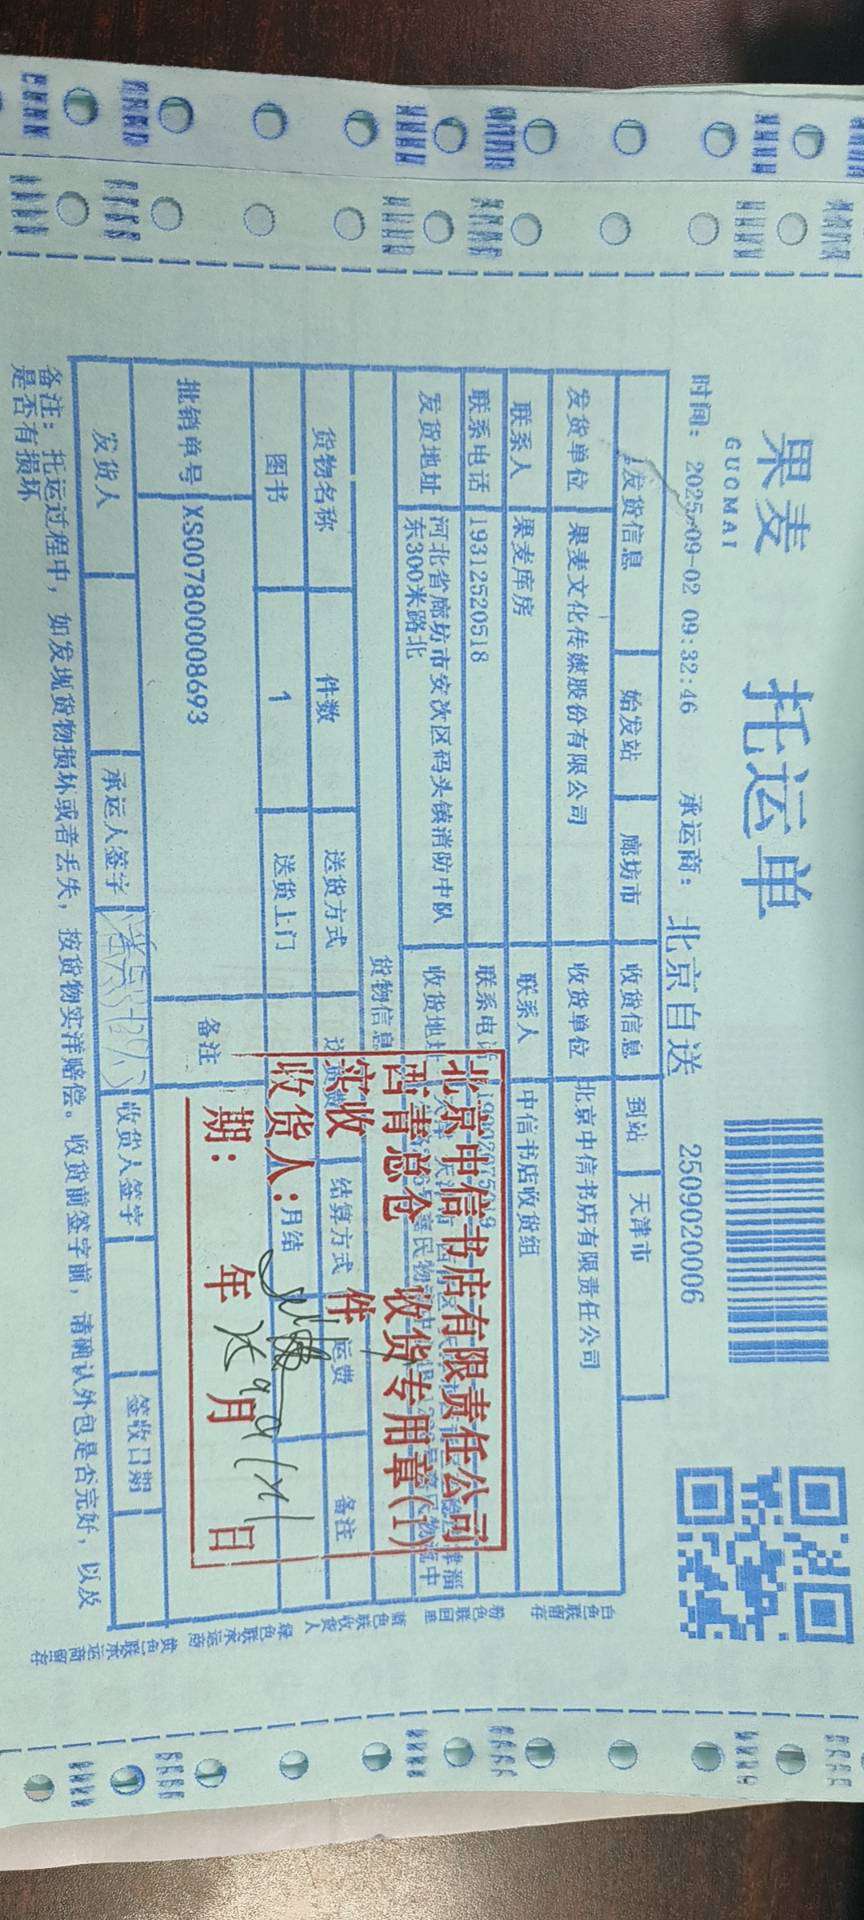 果麦
GUOMAI
托运单
时间: 2025-09-02 09:32:46 承运商: 北京自送 2509020006
发货信息 始发站 廊坊市 收货信息 到站 天津市
发货单位 果麦文化传媒股份有限公司 收货单位 北京中信书店有限责任公司
联系人 果麦库房 联系人 中信书店收货组
联系电话 19312520518 联系电话
发货地址 河北省廊坊市安次区码头镇消防中队东300米路北 收货地址
货物信息
货物名称 件数 送货方式 结算方式 运费 备注
图书 1 送货上门 月结
批销单号 XS007800008693 备注
发货人 承运人签字 收货人签字 签收日期
备注: 托运过程中, 如发现货物损坏或者丢失, 按货物实洋赔偿。收货前签字前, 请确认外包是否完好, 以及
是否有损坏
北京中信书店有限责任公司
西青总仓 收货专用章(1)
实收 件
收货人:
期: 年 月 日
白色联留存
粉色联回单
蓝色联收货人
绿色联承运商
黄色联承运商留存